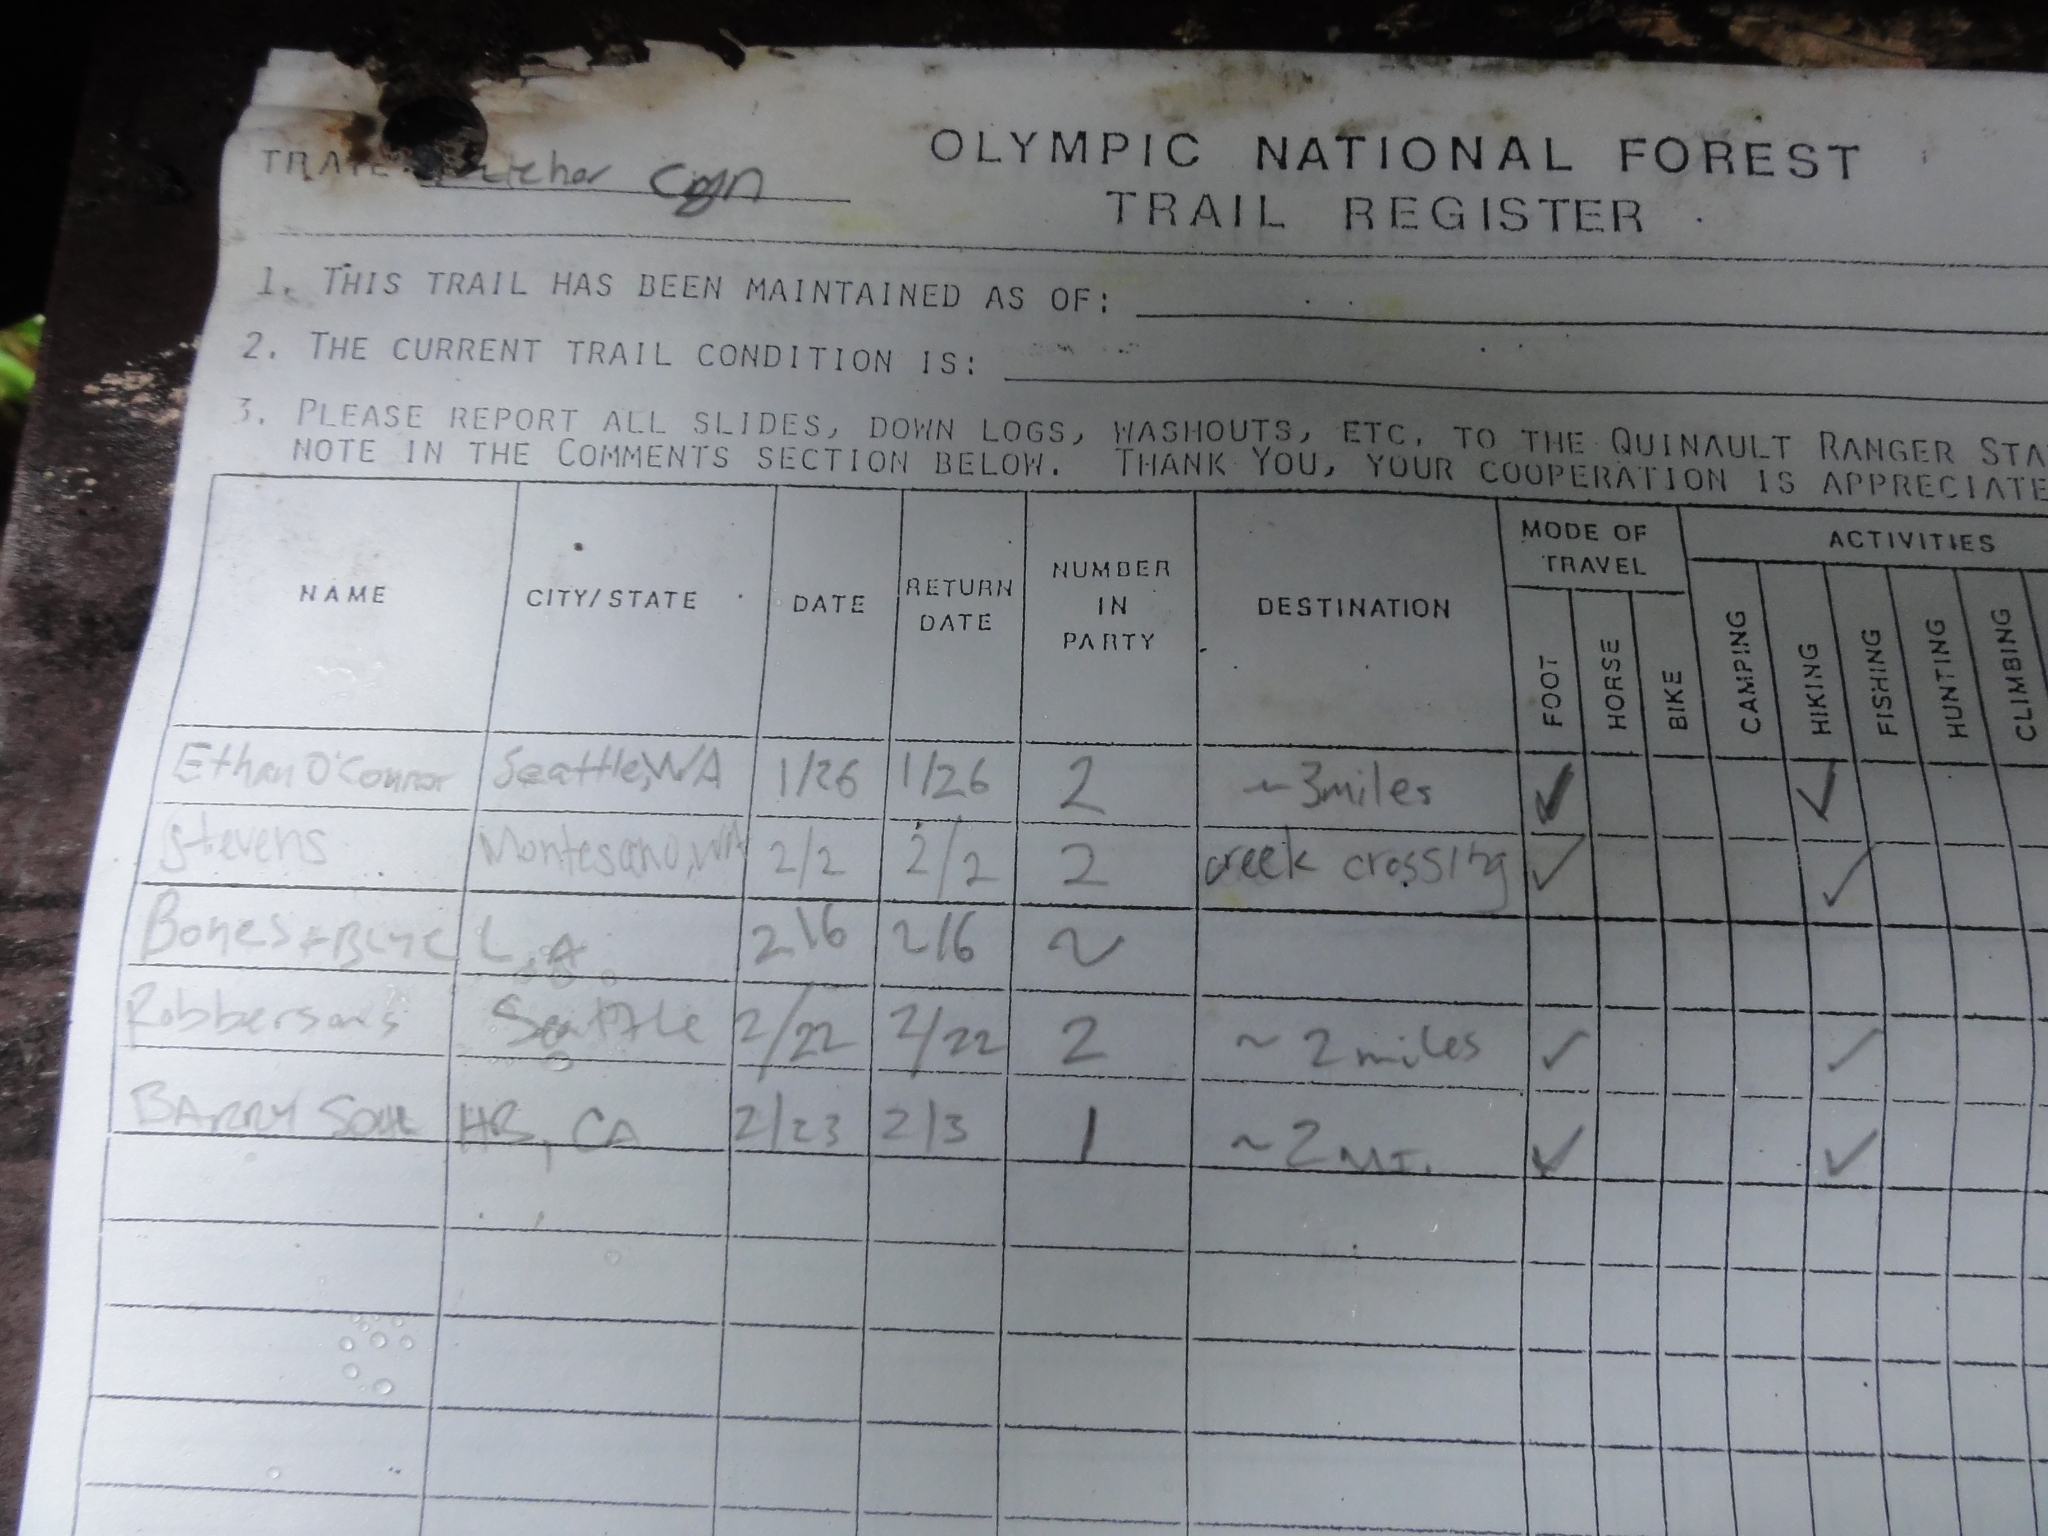 TRAIL Cyn
OLYMPIC NATIONAL FOREST
TRAIL REGISTER
1. THIS TRAIL HAS BEEN MAINTAINED AS OF:
2. THE CURRENT TRAIL CONDITION IS:
3. PLEASE REPORT ALL SLIDES, DOWN LOGS, WASHOUTS, ETC. TO THE QUINAULT RANGER STA
NOTE IN THE COMMENTS SECTION BELOW. THANK YOU, YOUR COOPERATION IS APPRECIATE
NAME CITY/STATE DATE RETURN DATE NUMBER IN PARTY DESTINATION MODE OF TRAVEL ACTIVITIES
FOOT HORSE BIKE CAMPING HIKING FISHING HUNTING CLIMBING
Ethan O'Connor Seattle, WA 1/26 1/26 2 ~3miles ✓ ✓
Stevens Montesano, WA 2/2 2/2 2 creek crossing ✓ ✓
Bones + L.A 2/6 2/6 2
Robbersons Seattle 2/22 2/22 2 ~2miles ✓ ✓
BARRY HB, CA 2/23 2/3 1 ~2 MI. ✓ ✓